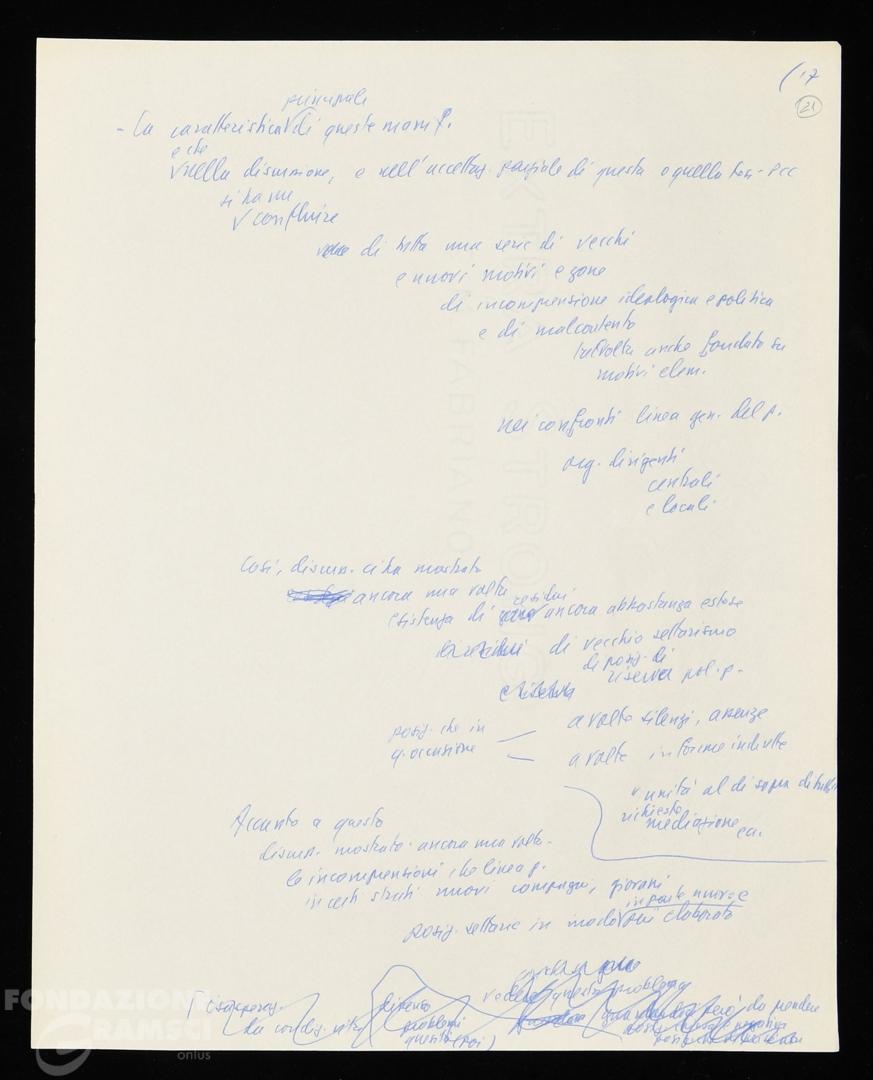 17
21
principale
- La caratteristica di queste manif.
è che
nella discussione, e nell'accettaz. parziale di questa o quella tesi - PCC
si ha un
confluire
di tutta una serie di vecchi
e nuovi motivi e zone
di incomprensione ideologica e politica
e di malcontento
talvolta anche fondato su
motivi elem.
nei confronti linea gen. del p.
org. dirigenti
centrali
e locali
Così, discuss. ci ha mostrato
ancora una volta
esistenza di residui ancora abbastanza estese
di vecchio settarismo
di posiz. di
riserva pol. p.
posiz. che in
q. occasione
a volte silenzi, assenze
a volte in forme indirette
unità al di sopra di tutto
richiesta
mediazione
ecc.
Accanto a questo
discuss. mostrato ancora una volta
le incomprensioni che linea p.
in certi strati nuovi compagni, giovani
in parte nuove e
posiz. settarie in modo più elaborato
vedere questo problema
però da prendere
problemi
questo (poi)
FONDAZIONE
GRAMSCI
onlus